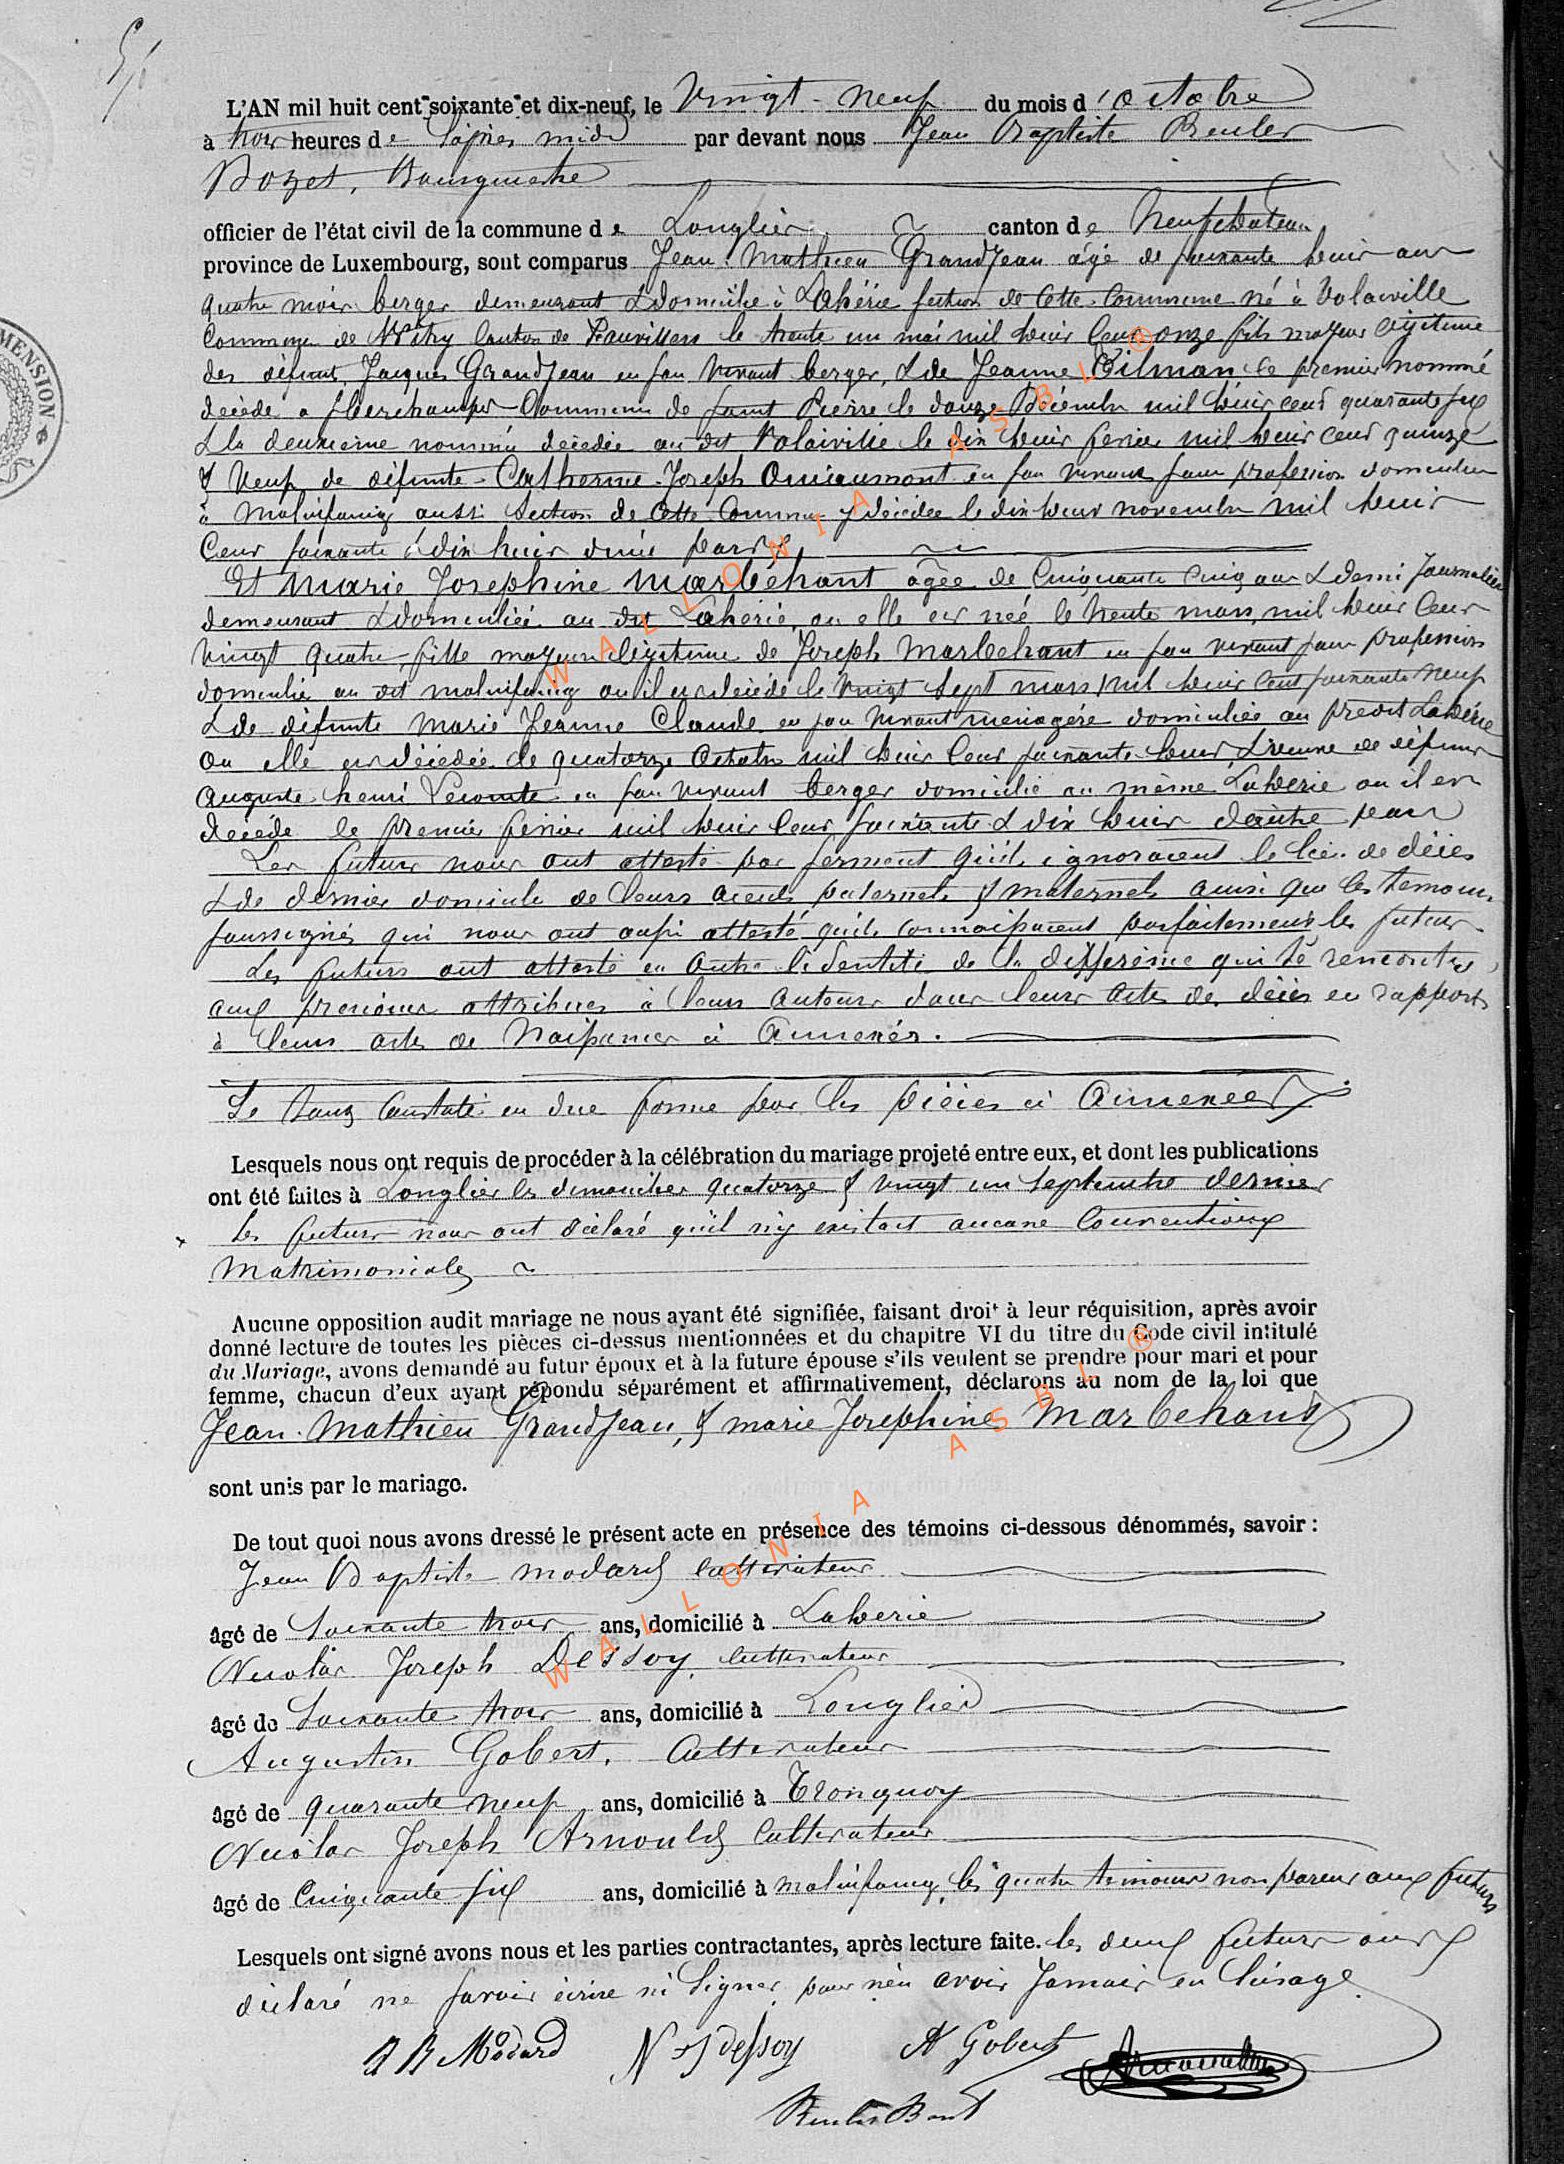 L'AN mil huit cent soixante et dix-neuf, le Vingt-neuf du mois d'octobre
à trois heures de l'après midi par devant nous Jean Baptiste Reuler
Bozet, Bourgmestre
officier de l'état civil de la commune de Longlier canton de Neufchateau
province de Luxembourg, sont comparus Jean Mathieu Grandjean âgé de soixante huit ans
quatre mois berger demeurant & domicilié à Lahérie section de cette commune né à Volaiville
commune de Witry canton de Fauvillers le trente un mai mil huit cent onze fils majeur légitime
des défunts Jacques Grandjean en son vivant berger, & de Jeanne Gilman le premier nommé
décédé à Sberchamps commune de Saint Pierre le douze Décembre mil huit cent quarante six
& la deuxième nommée décédée au dit Volaiville le dix huit février mil huit cent quinze
& veuf de défunte Catherine Joseph en son vivant sans profession domiciliée
à Malvifancy aussi section de cette commune y décédée le dix huit novembre mil huit
cent soixante & dix huit passé
Et Marie Josephine Marbehant âgée de cinquante cinq ans & demi Journalière
demeurant & domiciliée au dit Lahérie, où elle est née le trente mars mil huit cent
vingt quatre, fille majeure légitime de Joseph Marbehant en son vivant sans profession
domicilié au dit Malvifancy où il est décédé le vingt sept mars mil huit cent soixante neuf
& de défunte Marie Jeanne Claude en son vivant ménagère domiciliée au prédit Lahérie
où elle est décédée le quatorze octobre mil huit cent soixante huit, & veuve de défunt
Auguste henri Lecomte en son vivant berger domicilié au même Laherie où il est
décédé le premier février mil huit cent soixante & dix huit
Les futurs nous ont attesté par serment qu'ils ignoraient le lieu de décès
& de dernier domicile de leurs aieuls paternels & maternels ainsi que les temoins
soussignés qui nous ont aussi attesté qu'ils connaissaient parfaitement les futurs
Les futurs ont attesté en outre l'identité de la différence qui se rencontre
aux prénoms attribués à leurs auteurs dans leurs actes de décès en rapport
à leurs actes de Naissances ci annexés.
Le tout constaté en due forme par les pièces ci annexées
Lesquels nous ont requis de procéder à la célébration du mariage projeté entre eux, et dont les publications
ont été faites à Longlier les dimanches quatorze & vingt un septembre dernier
les futurs nous ont déclaré qu'il n'y existait aucune conventions
Matrimoniales
Aucune opposition audit mariage ne nous ayant été signifiée, faisant droit à leur réquisition, après avoir
donné lecture de toutes les pièces ci-dessus mentionnées et du chapitre VI du titre du Code civil intitulé
du Mariage, avons demandé au futur époux et à la future épouse s'ils veulent se prendre pour mari et pour
femme, chacun d'eux ayant répondu séparément et affirmativement, déclarons au nom de la loi que
Jean Mathieu Grandjean, & marie Josephine Marbehant
sont unis par le mariage.
De tout quoi nous avons dressé le présent acte en présence des témoins ci-dessous dénommés, savoir :
Jean Baptiste Modard cultivateur
âgé de Soixante trois ans, domicilié à Laherie
Nicolas Joseph Dessoy cultivateur
âgé de Soixante trois ans, domicilié à Longlier
Augustin Gobert, Cultivateur
âgé de quarante neuf ans, domicilié à Tronquoy
Nicolas Joseph Arnould Cultivateur
âgé de Cinquante six ans, domicilié à Malvifancy, les quatre témoins non parent aux futurs
Lesquels ont signé avons nous et les parties contractantes, après lecture faite. les deux futurs ont
déclaré ne savoir écrire ni Signer pour n'en avoir Jamais eu l'usage
J B Modard N J Dessoy A Gobert
WALLONIA ASBL ®
WALLONIA ASBL ®